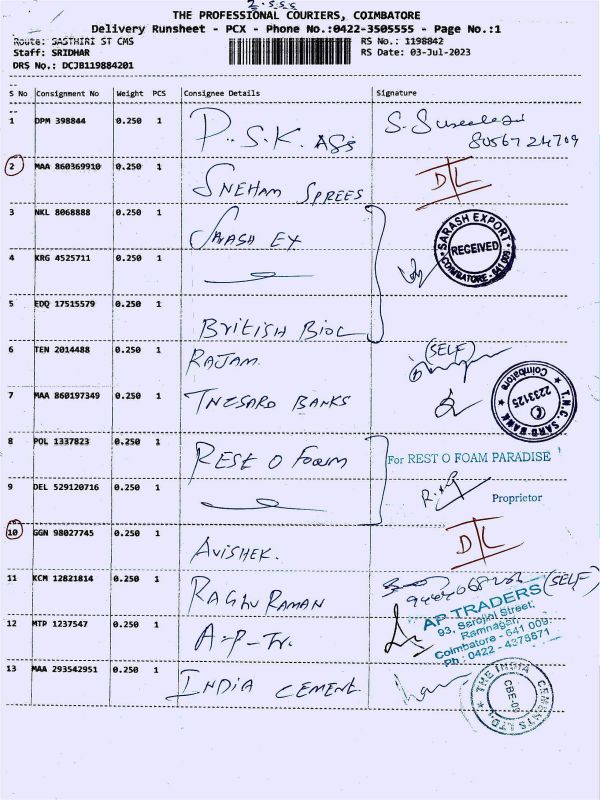 THE PROFESSIONAL COURIERS, COIMBATORE
Delivery Runsheet - PCX - Phone No.:0422-3505555 - Page No.:1
Route: SASTHIRI ST CMS
RS No.: 1198842
Staff: SRIDHAR
RS Date: 03-Jul-2023
DRS No.: DCJB119884201
S No Consignment No Weight PCS Consignee Details Signature
1 DPM 398844 0.250 1 P.S.K. ASS
8056724709
2 MAA 860369910 0.250 1 SNEHAM SPREES DL
3 NKL 8068888 0.250 1 SARASH EX
SARASH EXPORT
RECEIVED
COIMBATORE - 641 009
4 KRG 4525711 0.250 1
5 EDQ 17515579 0.250 1 BRITISH BIOL
6 TEN 2014488 0.250 1 RAJAM. (SELF)
7 MAA 860197349 0.250 1 TNESARD BANKS
T.N.C. SARD BANK
Coimbatore
2233125
8 POL 1337823 0.250 1 REST O FOAM For REST O FOAM PARADISE
9 DEL 529120716 0.250 1 Proprietor
10 GGN 98027745 0.250 1 AVISHEK. DL
11 KCM 12821814 0.250 1 RAGHU RAMAN (SELF)
12 MTP 1237547 0.250 1 A-P-Tr.
AP TRADERS
93, Sarojini Street,
Ramnagar,
Coimbatore - 641 009.
Ph : 0422 - 4378671
13 MAA 293542951 0.250 1 INDIA CEMENT.
THE INDIA CEMENTS LTD.
CBE-09